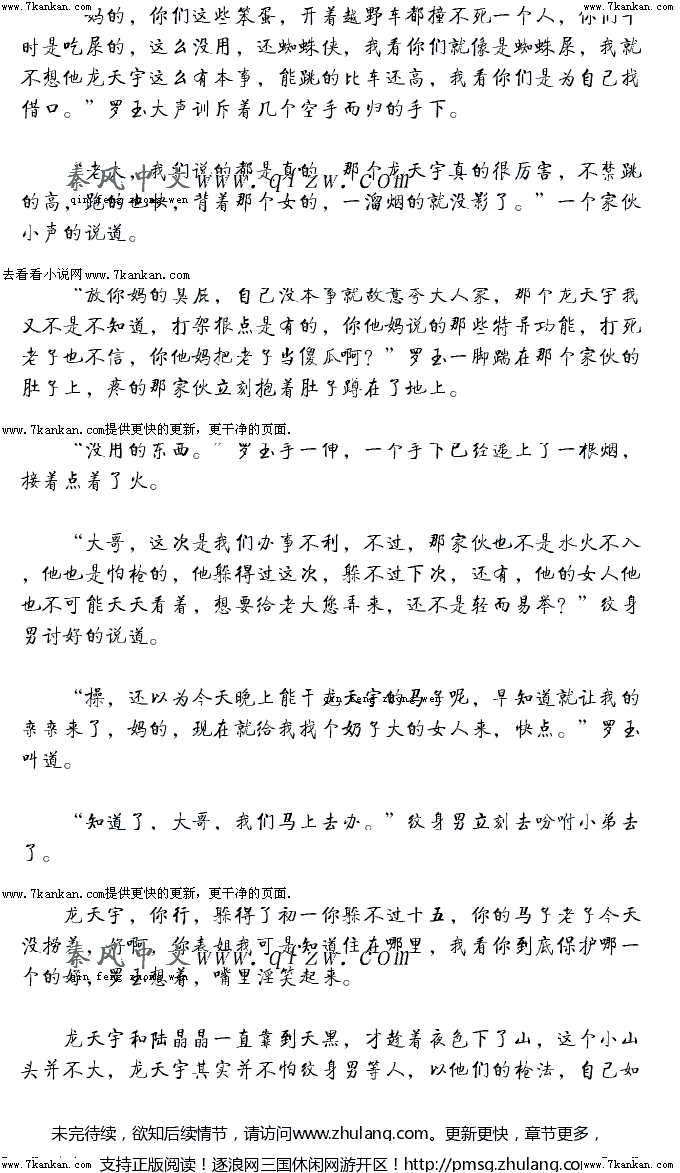 www.7kankan.com www.7kankan.com
妈的，你们这些笨蛋，开着越野车都撞不死一个人，你们平
时是吃屎的，这么没用，还蜘蛛侠，我看你们就像是蜘蛛屎，我就
不想他龙天宇这么有本事，能跳的比车还高，我看你们是为自己找
借口。”罗玉大声训斥着几个空手而归的手下。
“老大，我们说的都是真的，那个龙天宇真的很厉害，不禁跳
秦风中文www.qfzw.com
的高，跑的也快，背着那个女的，一溜烟的就没影了。”一个家伙
qin feng zhong wen
小声的说道。
去看看小说网www.7kankan.com
“放你妈的臭屁，自己没本事就故意夸大人家，那个龙天宇我
又不是不知道，打架狠点是有的，你他妈说的那些特异功能，打死
老子也不信，你他妈把老子当傻瓜啊？”罗玉一脚踹在那个家伙的
肚子上，疼的那家伙立刻抱着肚子蹲在了地上。
www.7kankan.com提供更快的更新，更干净的页面.
“没用的东西。”罗玉手一伸，一个手下已经递上了一根烟，
接着点着了火。
“大哥，这次是我们办事不利，不过，那家伙也不是水火不入
，他也是怕枪的，他躲得过这次，躲不过下次，还有，他的女人他
也不可能天天看着，想要给老大您弄来，还不是轻而易举？”纹身
男讨好的说道。
“操，还以为今天晚上能干龙天宇的马子呢，早知道就让我的
qin feng zhong wen
亲亲来了，妈的，现在就给我找个奶子大的女人来，快点。”罗玉
叫道。
“知道了，大哥，我们马上去办。”纹身男立刻去吩咐小弟去
了。
www.7kankan.com提供更快的更新，更干净的页面.
龙天宇，你行，躲得了初一你躲不过十五，你的马子老子今天
没捞着，好啊，你表姐我可是知道住在哪里，我看你到底保护哪一
秦风中文www.qfzw.com
个的好，罗玉想着，嘴里淫笑起来。
qin feng zhong wen
龙天宇和陆晶晶一直靠到天黑，才趁着夜色下了山，这个小山
头并不大，龙天宇其实并不怕纹身男等人，以他们的枪法，自己如
未完待续，欲知后续情节，请访问www.zhulang.com。更新更快，章节更多，
支持正版阅读！逐浪网三国休闲网游开区！http://pmsg.zhulang.co
www.7kankan.com www.7kankan.com